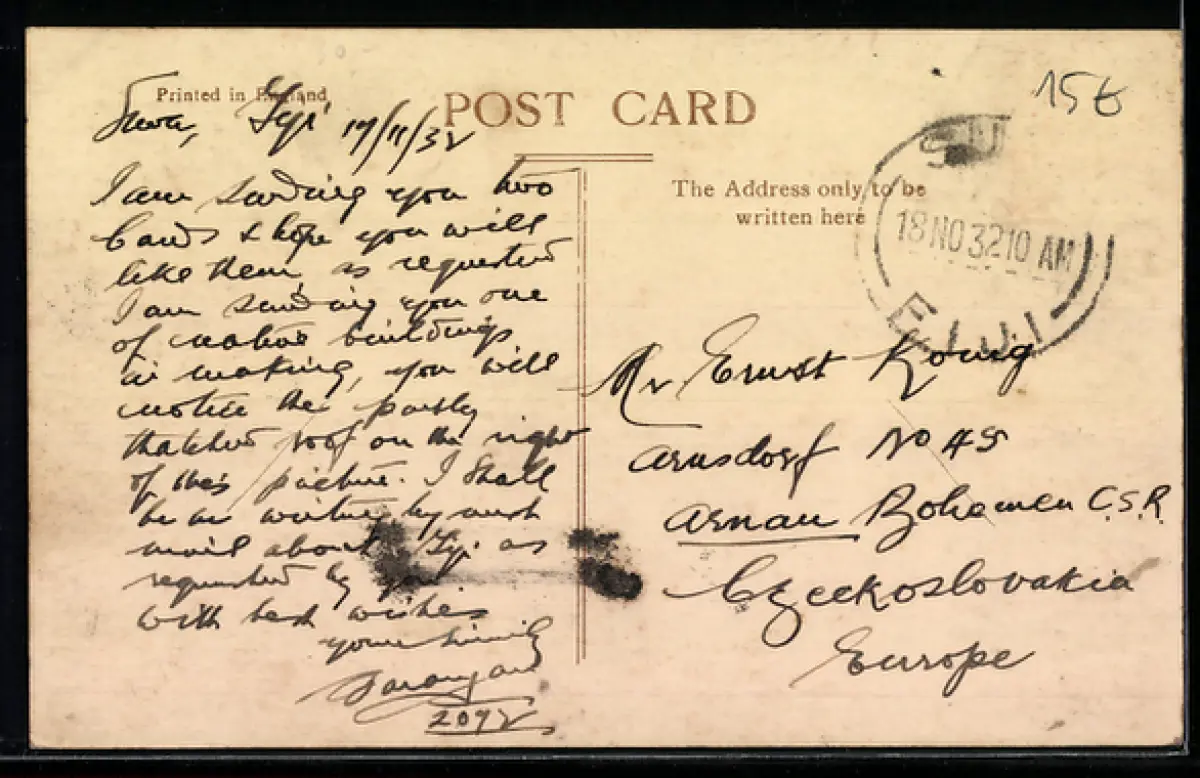 Printed in England
Suva, Fiji 17/11/32
I am sending you two
Cards & hope you will
like them, as requested
I am sending you one
of native buildings
in making, you will
notice the partly
thatched roof on the right
of this picture. I shall
be writing by next
mail about Fiji as
requested by you
with best wishes
yours
2092
POST CARD
The Address only to be
written here
15
SUVA
18 NO 32 10 AM
FIJI
Mr Ernst Konig
Arnsdorf No 45
Arnau Bohemen C.S.R.
Czeckoslovakia
Europe